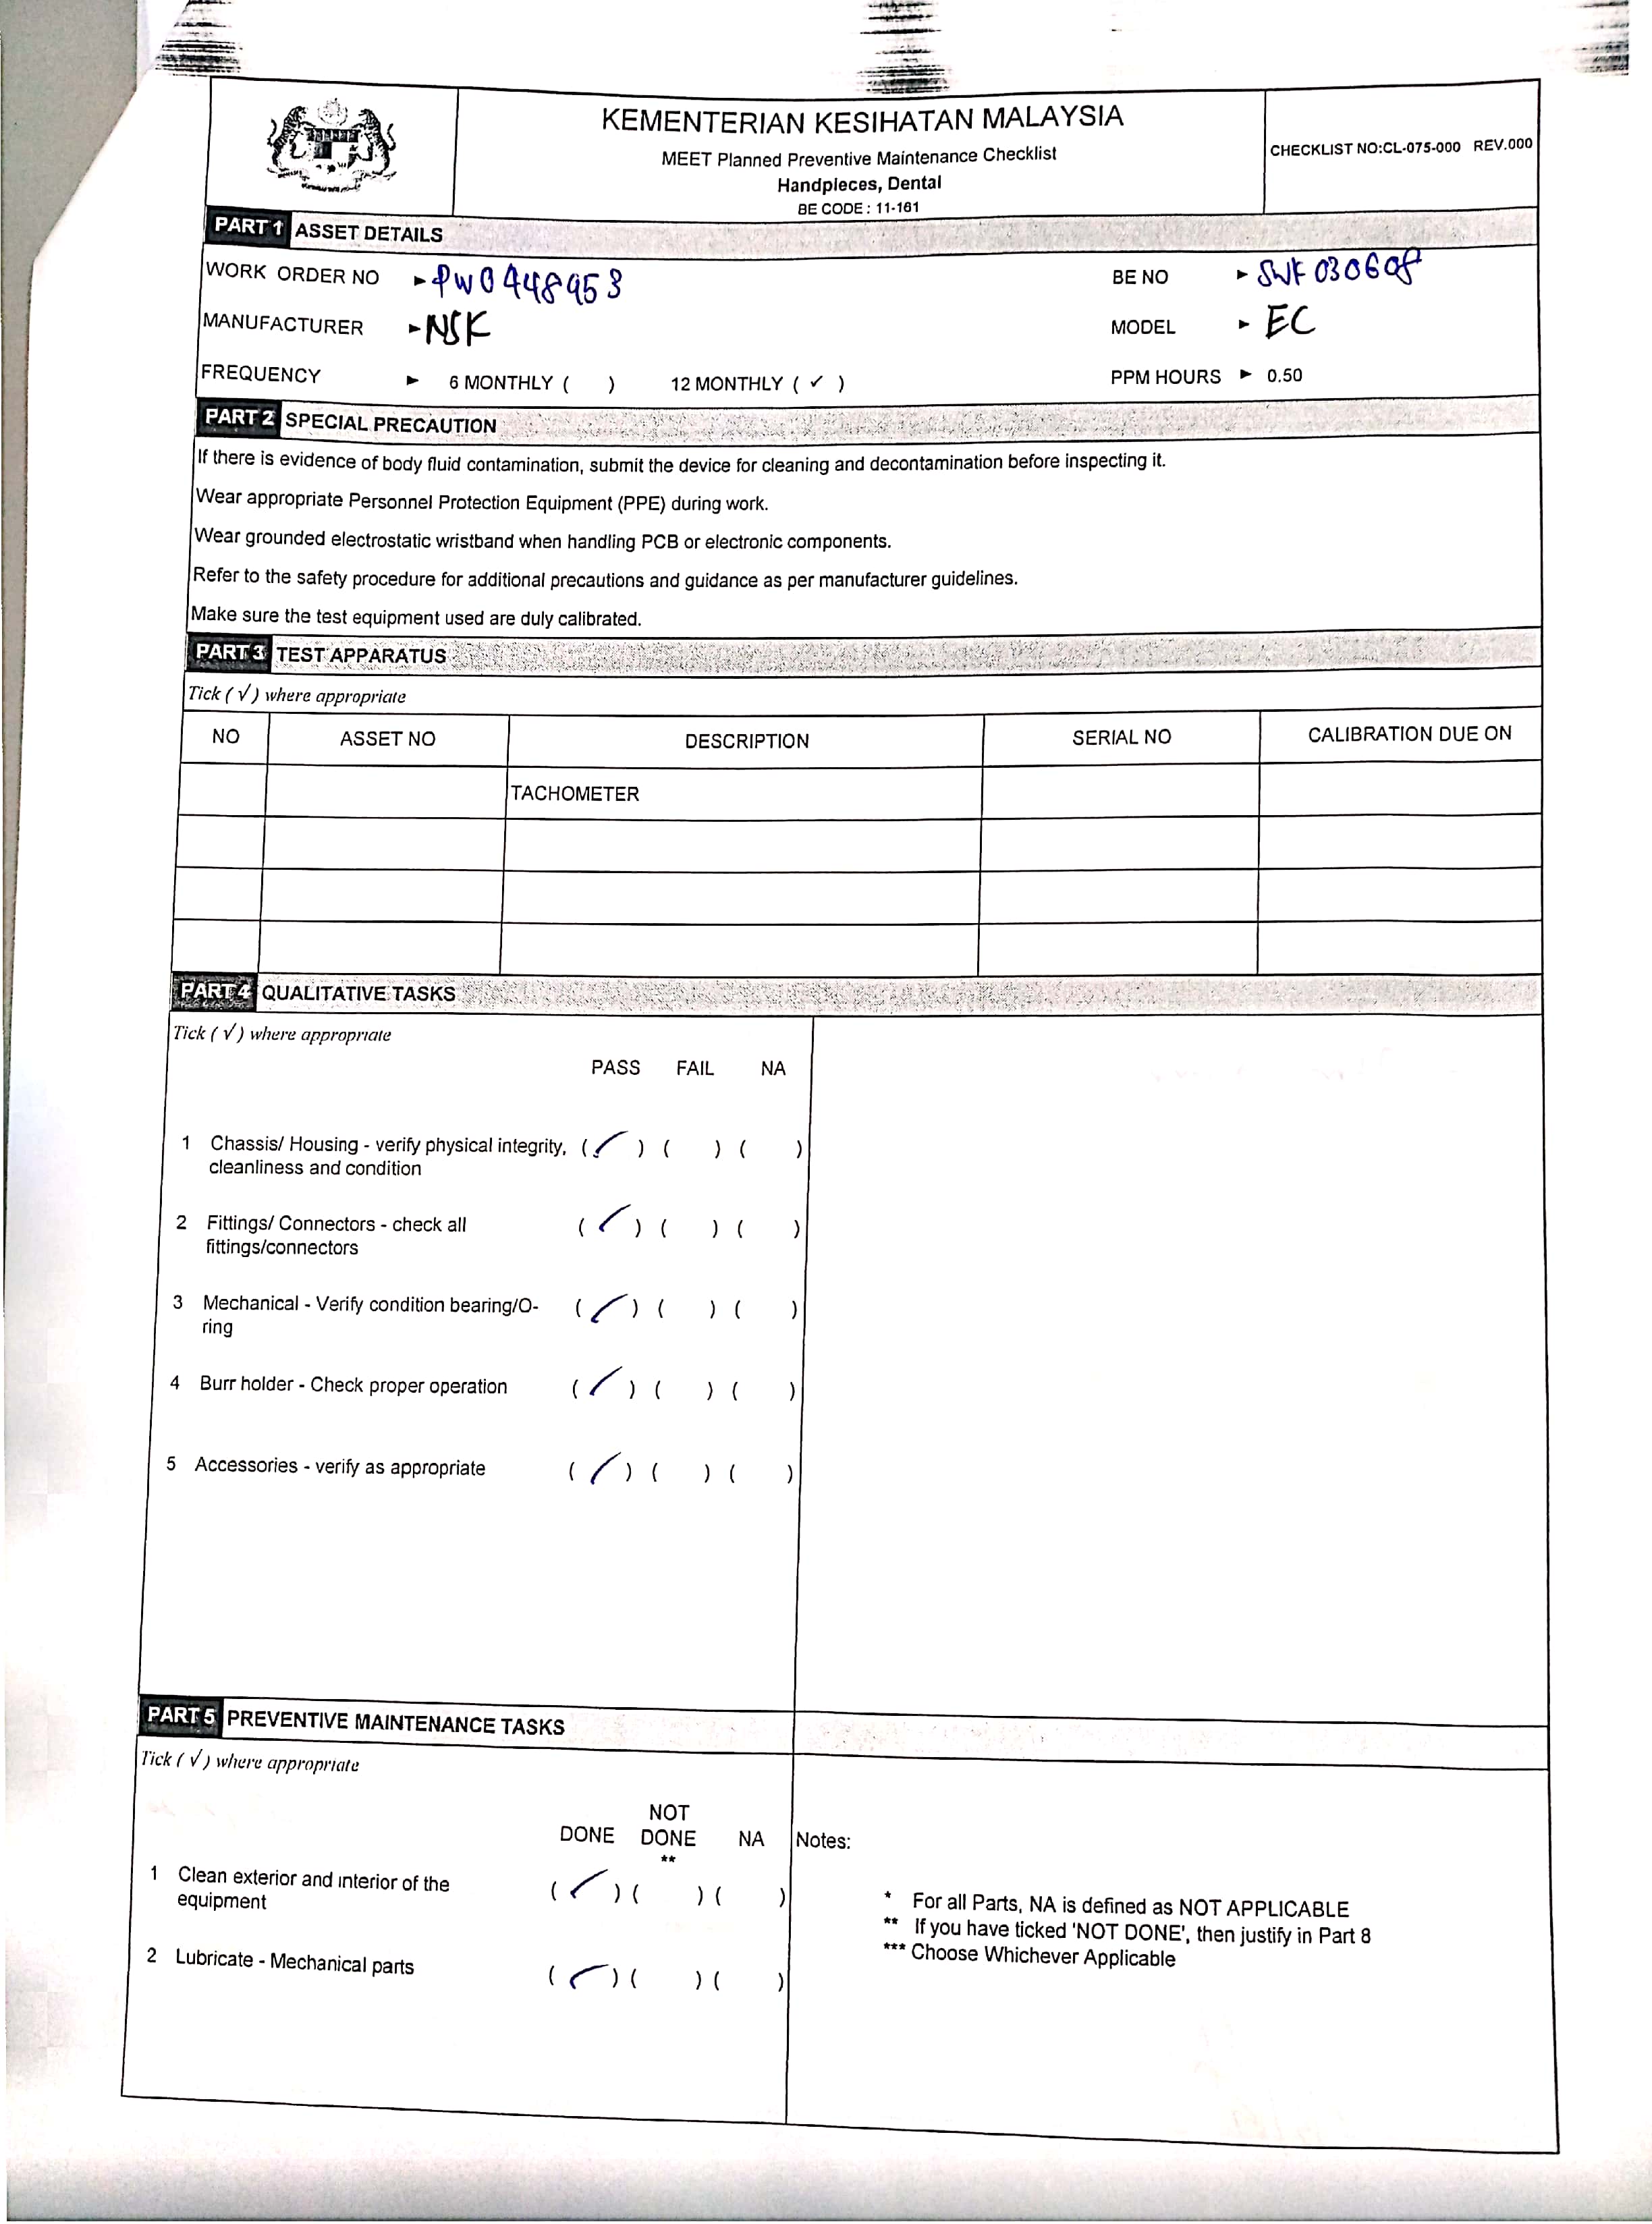 KEMENTERIAN KESIHATAN MALAYSIA
MEET Planned Preventive Maintenance Checklist
Handpieces, Dental
BE CODE : 11-161
CHECKLIST NO:CL-075-000 REV.000
PART 1 ASSET DETAILS
WORK ORDER NO ► PW0448953 BE NO ► SWK030608
MANUFACTURER ► NSK MODEL ► EC
FREQUENCY ► 6 MONTHLY ( ) 12 MONTHLY ( ✓ ) PPM HOURS ► 0.50
PART 2 SPECIAL PRECAUTION
If there is evidence of body fluid contamination, submit the device for cleaning and decontamination before inspecting it.
Wear appropriate Personnel Protection Equipment (PPE) during work.
Wear grounded electrostatic wristband when handling PCB or electronic components.
Refer to the safety procedure for additional precautions and guidance as per manufacturer guidelines.
Make sure the test equipment used are duly calibrated.
PART 3 TEST APPARATUS
Tick ( √ ) where appropriate
NO ASSET NO DESCRIPTION SERIAL NO CALIBRATION DUE ON
TACHOMETER
PART 4 QUALITATIVE TASKS
Tick ( √ ) where appropriate
PASS FAIL NA
1 Chassis/ Housing - verify physical integrity, ( ✓ ) ( ) ( )
cleanliness and condition
2 Fittings/ Connectors - check all ( ✓ ) ( ) ( )
fittings/connectors
3 Mechanical - Verify condition bearing/O- ( ✓ ) ( ) ( )
ring
4 Burr holder - Check proper operation ( ✓ ) ( ) ( )
5 Accessories - verify as appropriate ( ✓ ) ( ) ( )
PART 5 PREVENTIVE MAINTENANCE TASKS
Tick ( √ ) where appropriate
NOT
DONE DONE NA
**
1 Clean exterior and interior of the ( ✓ ) ( ) ( )
equipment
2 Lubricate - Mechanical parts ( ✓ ) ( ) ( )
Notes:
* For all Parts, NA is defined as NOT APPLICABLE
** If you have ticked 'NOT DONE', then justify in Part 8
*** Choose Whichever Applicable